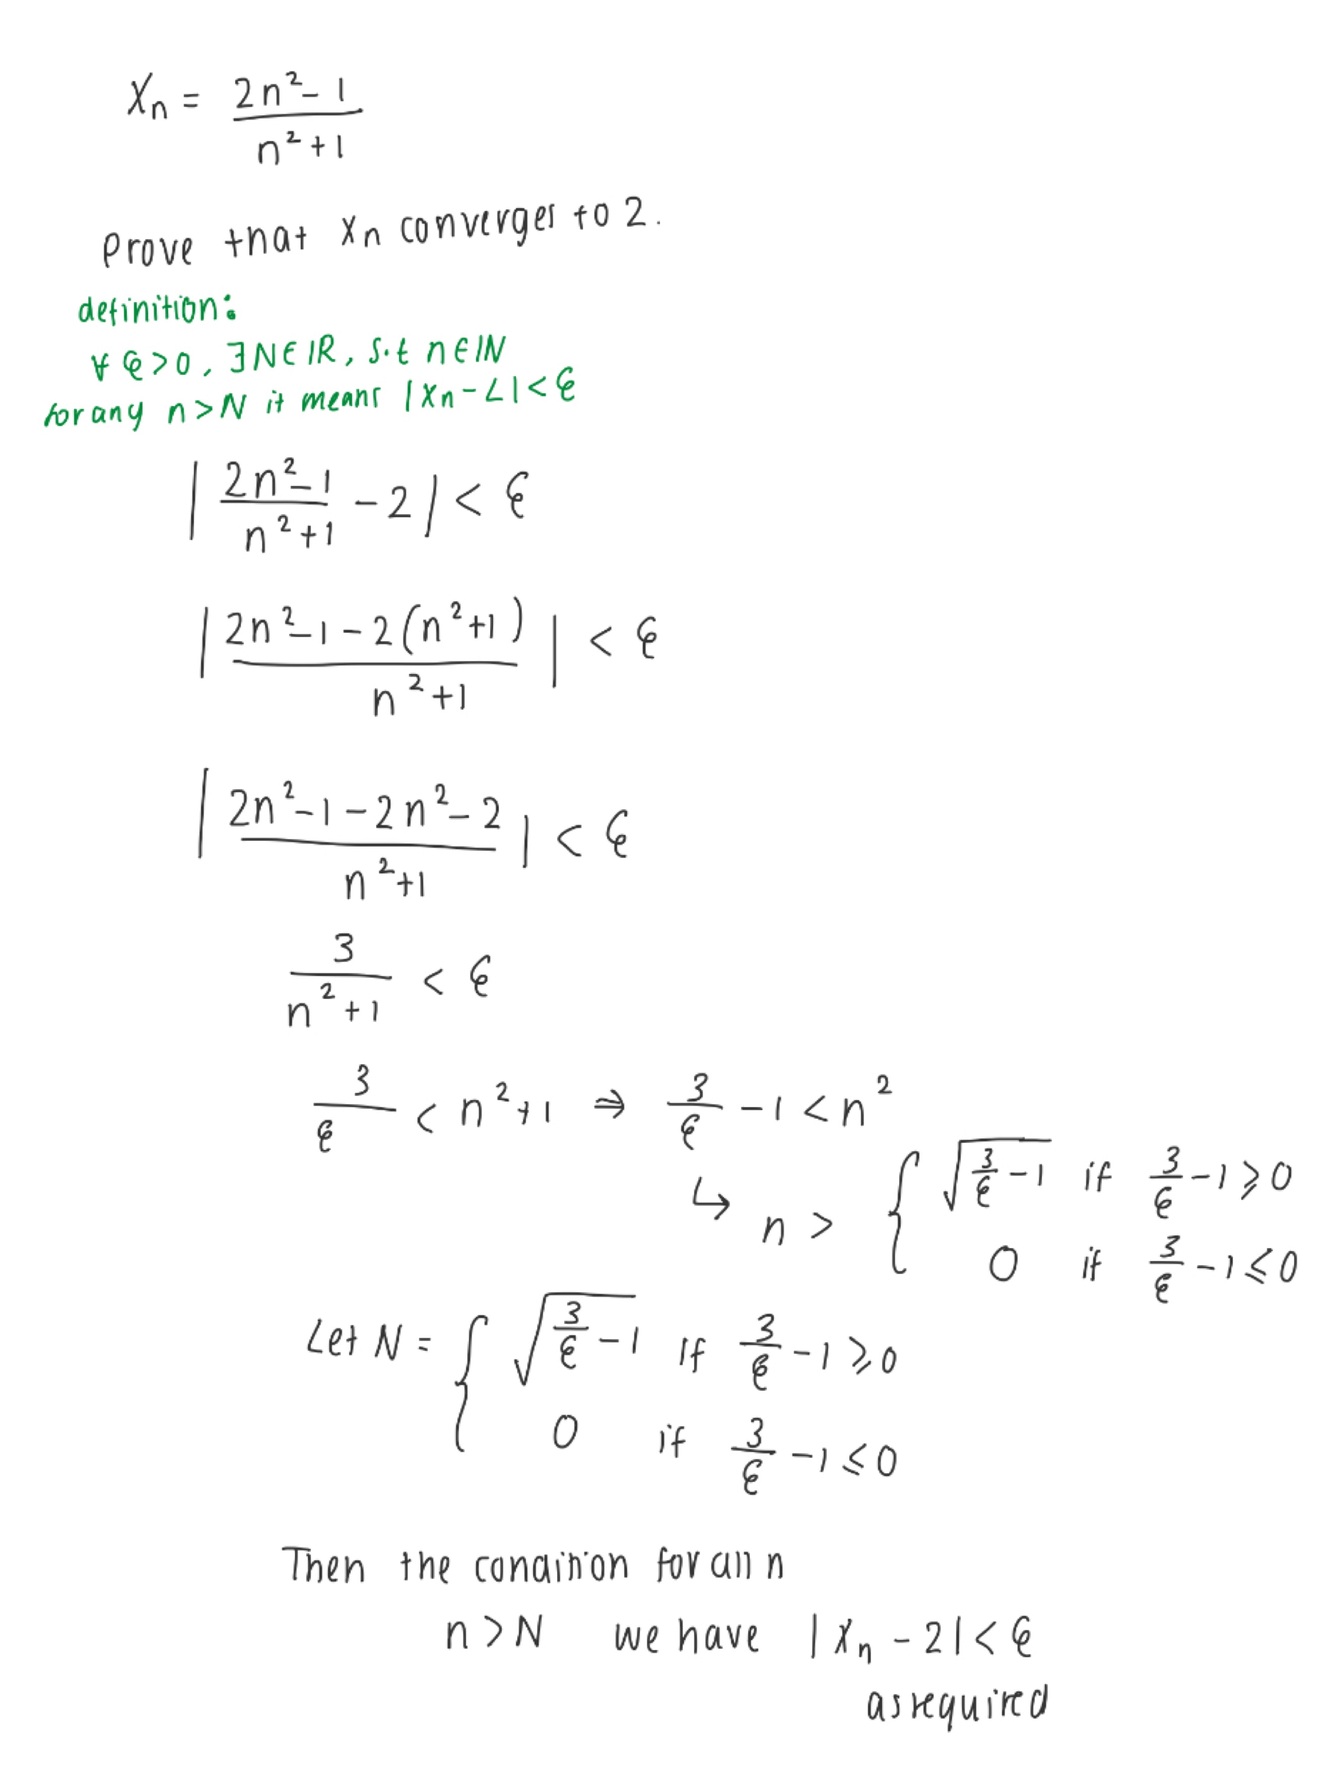 Xn = (2n² - 1)/(n² + 1)
Prove that Xn converges to 2.
definition:
∀ ε > 0, ∃N∈ℝ, s.t n∈ℕ
for any n > N it means |Xn - L| < ε
|(2n² - 1)/(n² + 1) - 2| < ε
|(2n² - 1 - 2(n² + 1))/(n² + 1)| < ε
|(2n² - 1 - 2n² - 2)/(n² + 1)| < ε
3/(n² + 1) < ε
3/ε < n² + 1 ⇒ 3/ε - 1 < n²
↳ n > { √(3/ε - 1) if 3/ε - 1 ⩾ 0
0 if 3/ε - 1 ⩽ 0
Let N = { √(3/ε - 1) if 3/ε - 1 ⩾ 0
0 if 3/ε - 1 ⩽ 0
Then the condition for all n
n > N we have |Xn - 2| < ε
as required